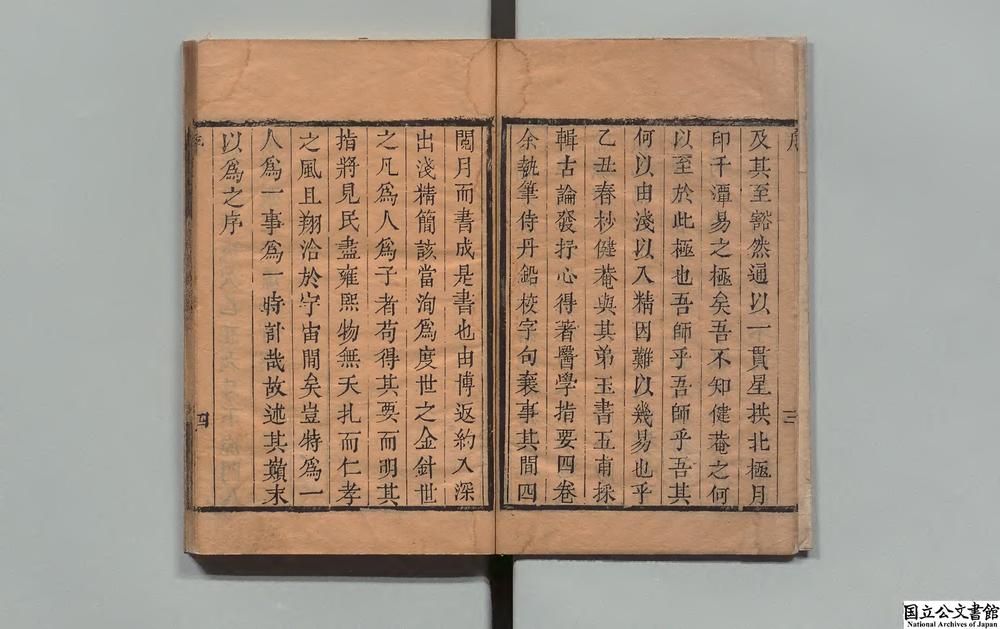 序
三
及其至豁然通以一貫星拱北極月
印千潭易之極矣吾不知健菴之何
以至於此極也吾師乎吾師乎吾其
何以由淺以入精因難以幾易也乎
乙丑春杪健菴與其弟玉書五甫採
輯古論發抒心得著醫學指要四卷
余執筆侍丹鉛校字句襄事其間四
閲月而書成是書也由博返約入深
出淺精簡該當洵為度世之金針世
之凡為人為子者苟得其要而明其
指將見民盡雍熙物無夭札而仁孝
之風且翔洽於宇宙間矣豈特為一
人為一事為一時計哉故述其巔末
以為之序
序
四
国立公文書館
National Archives of Japan